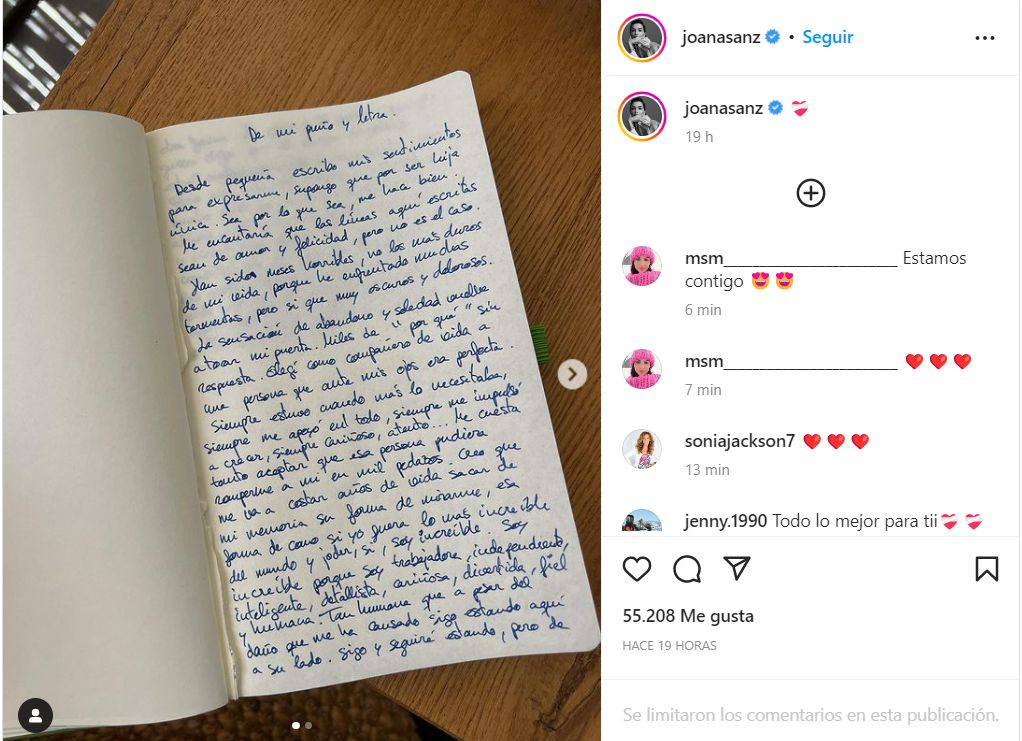 De mi puño y letra.
Desde pequeña escribo mis sentimientos
para expresarme, supongo que por ser hija
única. Sea por lo que sea, me hace bien.
Me encantaría que las líneas aquí escritas
sean de amor y felicidad, pero no es el caso.
Han sidos meses horribles, no los más duros
de mi vida, porque he enfrentado muchas
tormentas, pero si que muy oscuros y dolorosos.
La sensación de abandono y soledad vuelve
a tocar mi puerta. Miles de "por qué" sin
respuesta. Elegí como compañero de vida a
una persona que ante mis ojos era perfecta.
Siempre estuvo cuando más lo necesitaba,
siempre me apoyó en todo, siempre me impulsó
a crecer, siempre cariñoso, atento... Me cuesta
tanto aceptar que esa persona pudiera
romperme a mi en mil pedazos. Creo que
me va a costar años de vida sacar de
mi memoria su forma de mirarme, esa
forma de como si yo fuera lo más increíble
del mundo y joder, si, soy increíble. Soy
increíble porque soy trabajadora, independiente,
inteligente, detallista, cariñosa, divertida, fiel
y humana. Tan humana que a pesar del
daño que me ha causado sigo estando aquí
a su lado. Sigo y seguiré estando, pero de
joanasanz • Seguir
joanasanz ❤️‍🩹
19 h
msm______________________ Estamos
contigo 😍😍
6 min
msm______________________ ❤️❤️❤️
7 min
soniajackson7 ❤️❤️❤️
13 min
jenny.1990 Todo lo mejor para tii❤️‍🩹❤️‍🩹
55.208 Me gusta
HACE 19 HORAS
Se limitaron los comentarios en esta publicación.